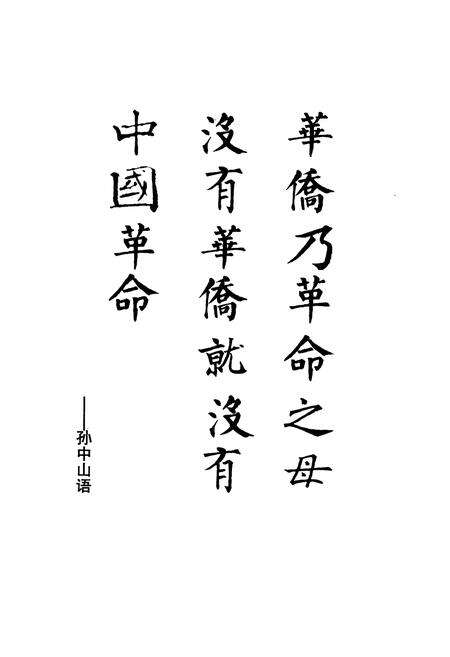 華僑乃革命之母
沒有華僑就沒有
中國革命
——孙中山语